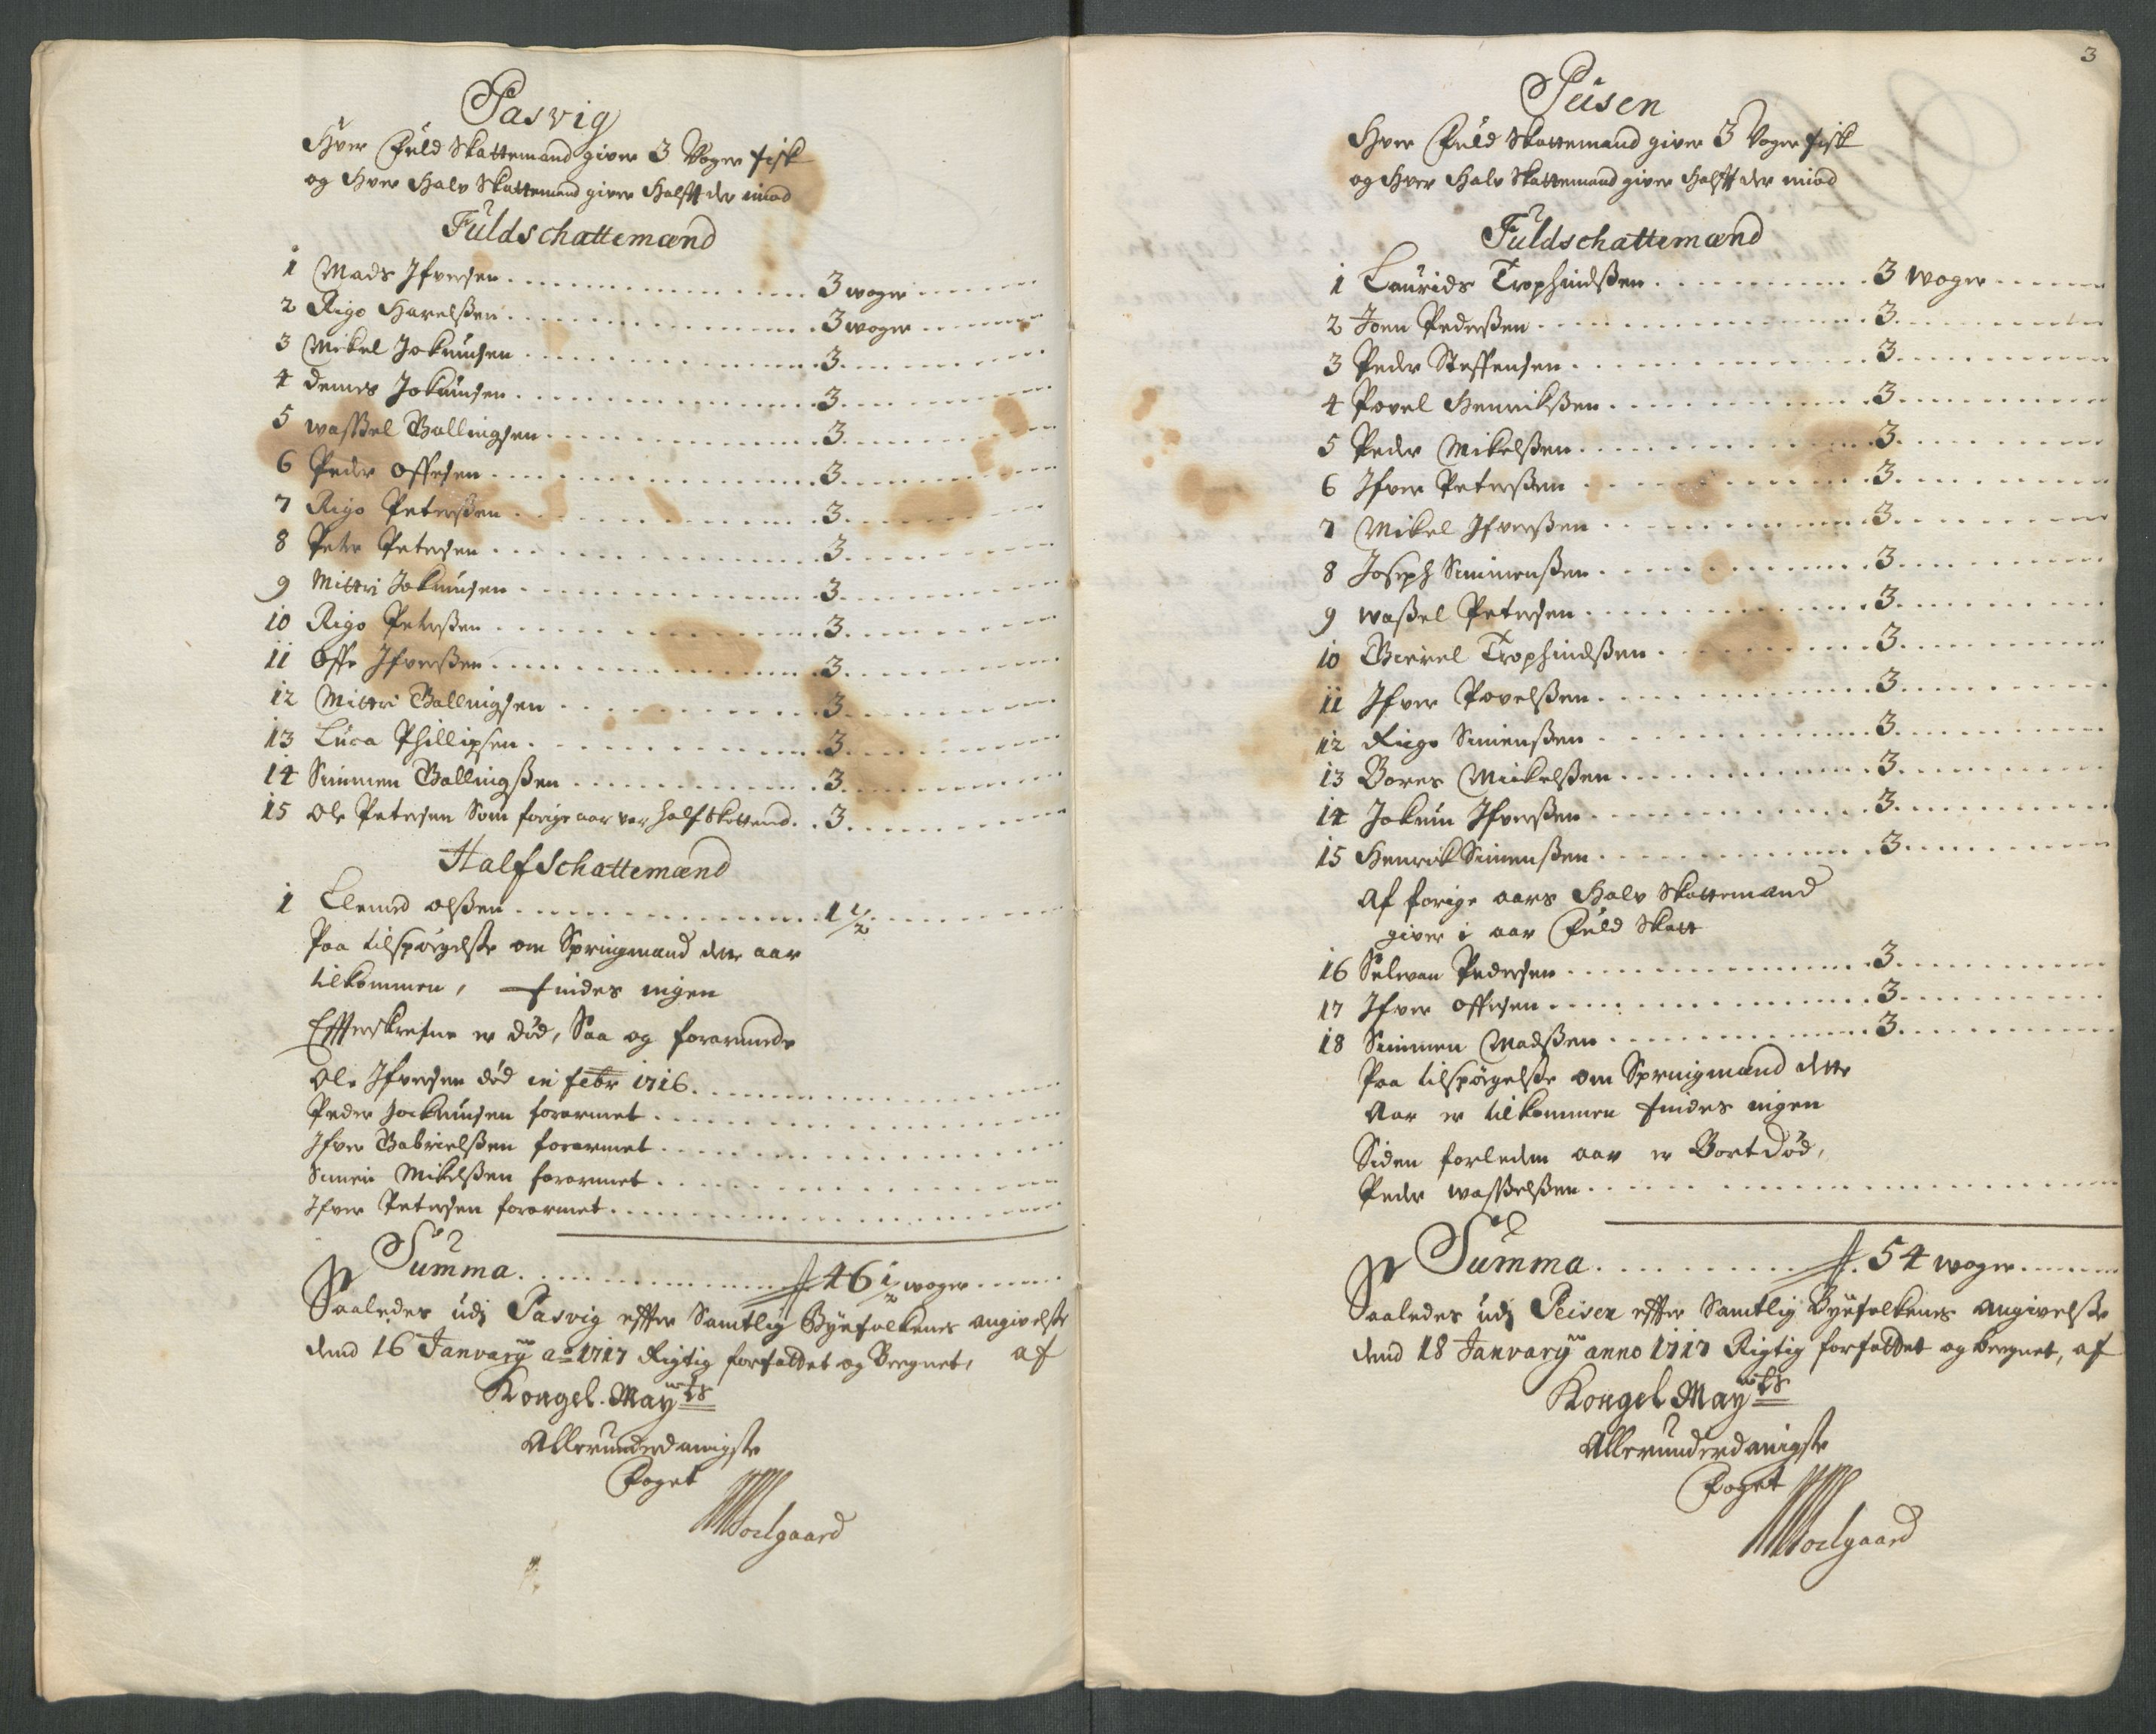 Pasvig
Hver Fuld Skattemand giver 3 Voger fisk
og Hver Halv Skattemand giver Halfft der mod
Fuldschattemænd
1 Mads Ifversen 3 woger
2 Rigo Harelsßen 3 woger
3 Mikel Jokumsen 3
4 Demes Jokumsen 3
5 wasßel Ballingsen 3
6 Peder Offesen 3
7 Rigo Petersßen 3
8 Peter Petersen 3
9 Mittri Jokumsen 3
10 Rigo Petersßen 3
11 Offe Ifversßen 3
12 Mittri Ballingsen 3
13 Luca Phillipsen 3
14 Simmen Ballingsßen 3
15 Ole Petersen Som forige aar var half Skattemd 3
Half Schattemænd
1 Clemed olsßen 1 1/2
Paa tilspörgelsße om Springmænd dette aar
tilkommen, findes ingen
Effterskrefne er død, Saa og forarmede
Ole Ifversen død in febr 1716
Peder Jockumsen forarmet
Ifver Gabrielsßen forarmet
Simen Mikelsßen forarmet
Ifver Petersen forarmet
Summa 46 1/2 woger
Saaledes udj Pasvig effter Samtlig Byefolkenes angivelsße
dend 16 January ao 1717 Rigtig forfattet og Beregnet, af
Kongel. Mayts
Allerunderdanigste
Foget
Soelgaard
3
Peisen
Hver Fuld Skattemand giver 3 Voger fisk
og Hver Halv Skattemand giver Halfft der mod
Fuldschattemænd
1 Laurids Trophindsßen 3 woger
2 Joen Pedersßen 3
3 Peder Steffensen 3
4 Povel Henriksßen 3
5 Peder Mikelsßen 3
6 Ifver Petersßen 3
7 Mikel Ifversßen 3
8 Joseph Simmensßen 3
9 wasßel Petersen 3
10 Gavrel Trophindsßen 3
11 Ifver Povelsßen 3
12 Riigo Simensßen 3
13 Bores Miekelsßen 3
14 Jokum Ifversßen 3
15 Henrik Simensßen 3
Af forige aars Halv Skattemænd
giver i aar Fuld Skatt
16 Selvan Pedersen 3
17 Ifver Offesen 3
18 Simmen Madsßen 3
Paa tilspörgelsße om Springmænd dette
Aar er tilkommen findes ingen
Siden forleden aar er Bort død,
Peder wasßelsßen
Summa 54 woger
Saaledes udj Peisen effter Samtlig Byefolkenes angivelsße
dend 18 January anno 1717 Rigtig forfattet og beregnet, af
Kongel Mayts
Allerunderdanigste
Foget
Soelgaard